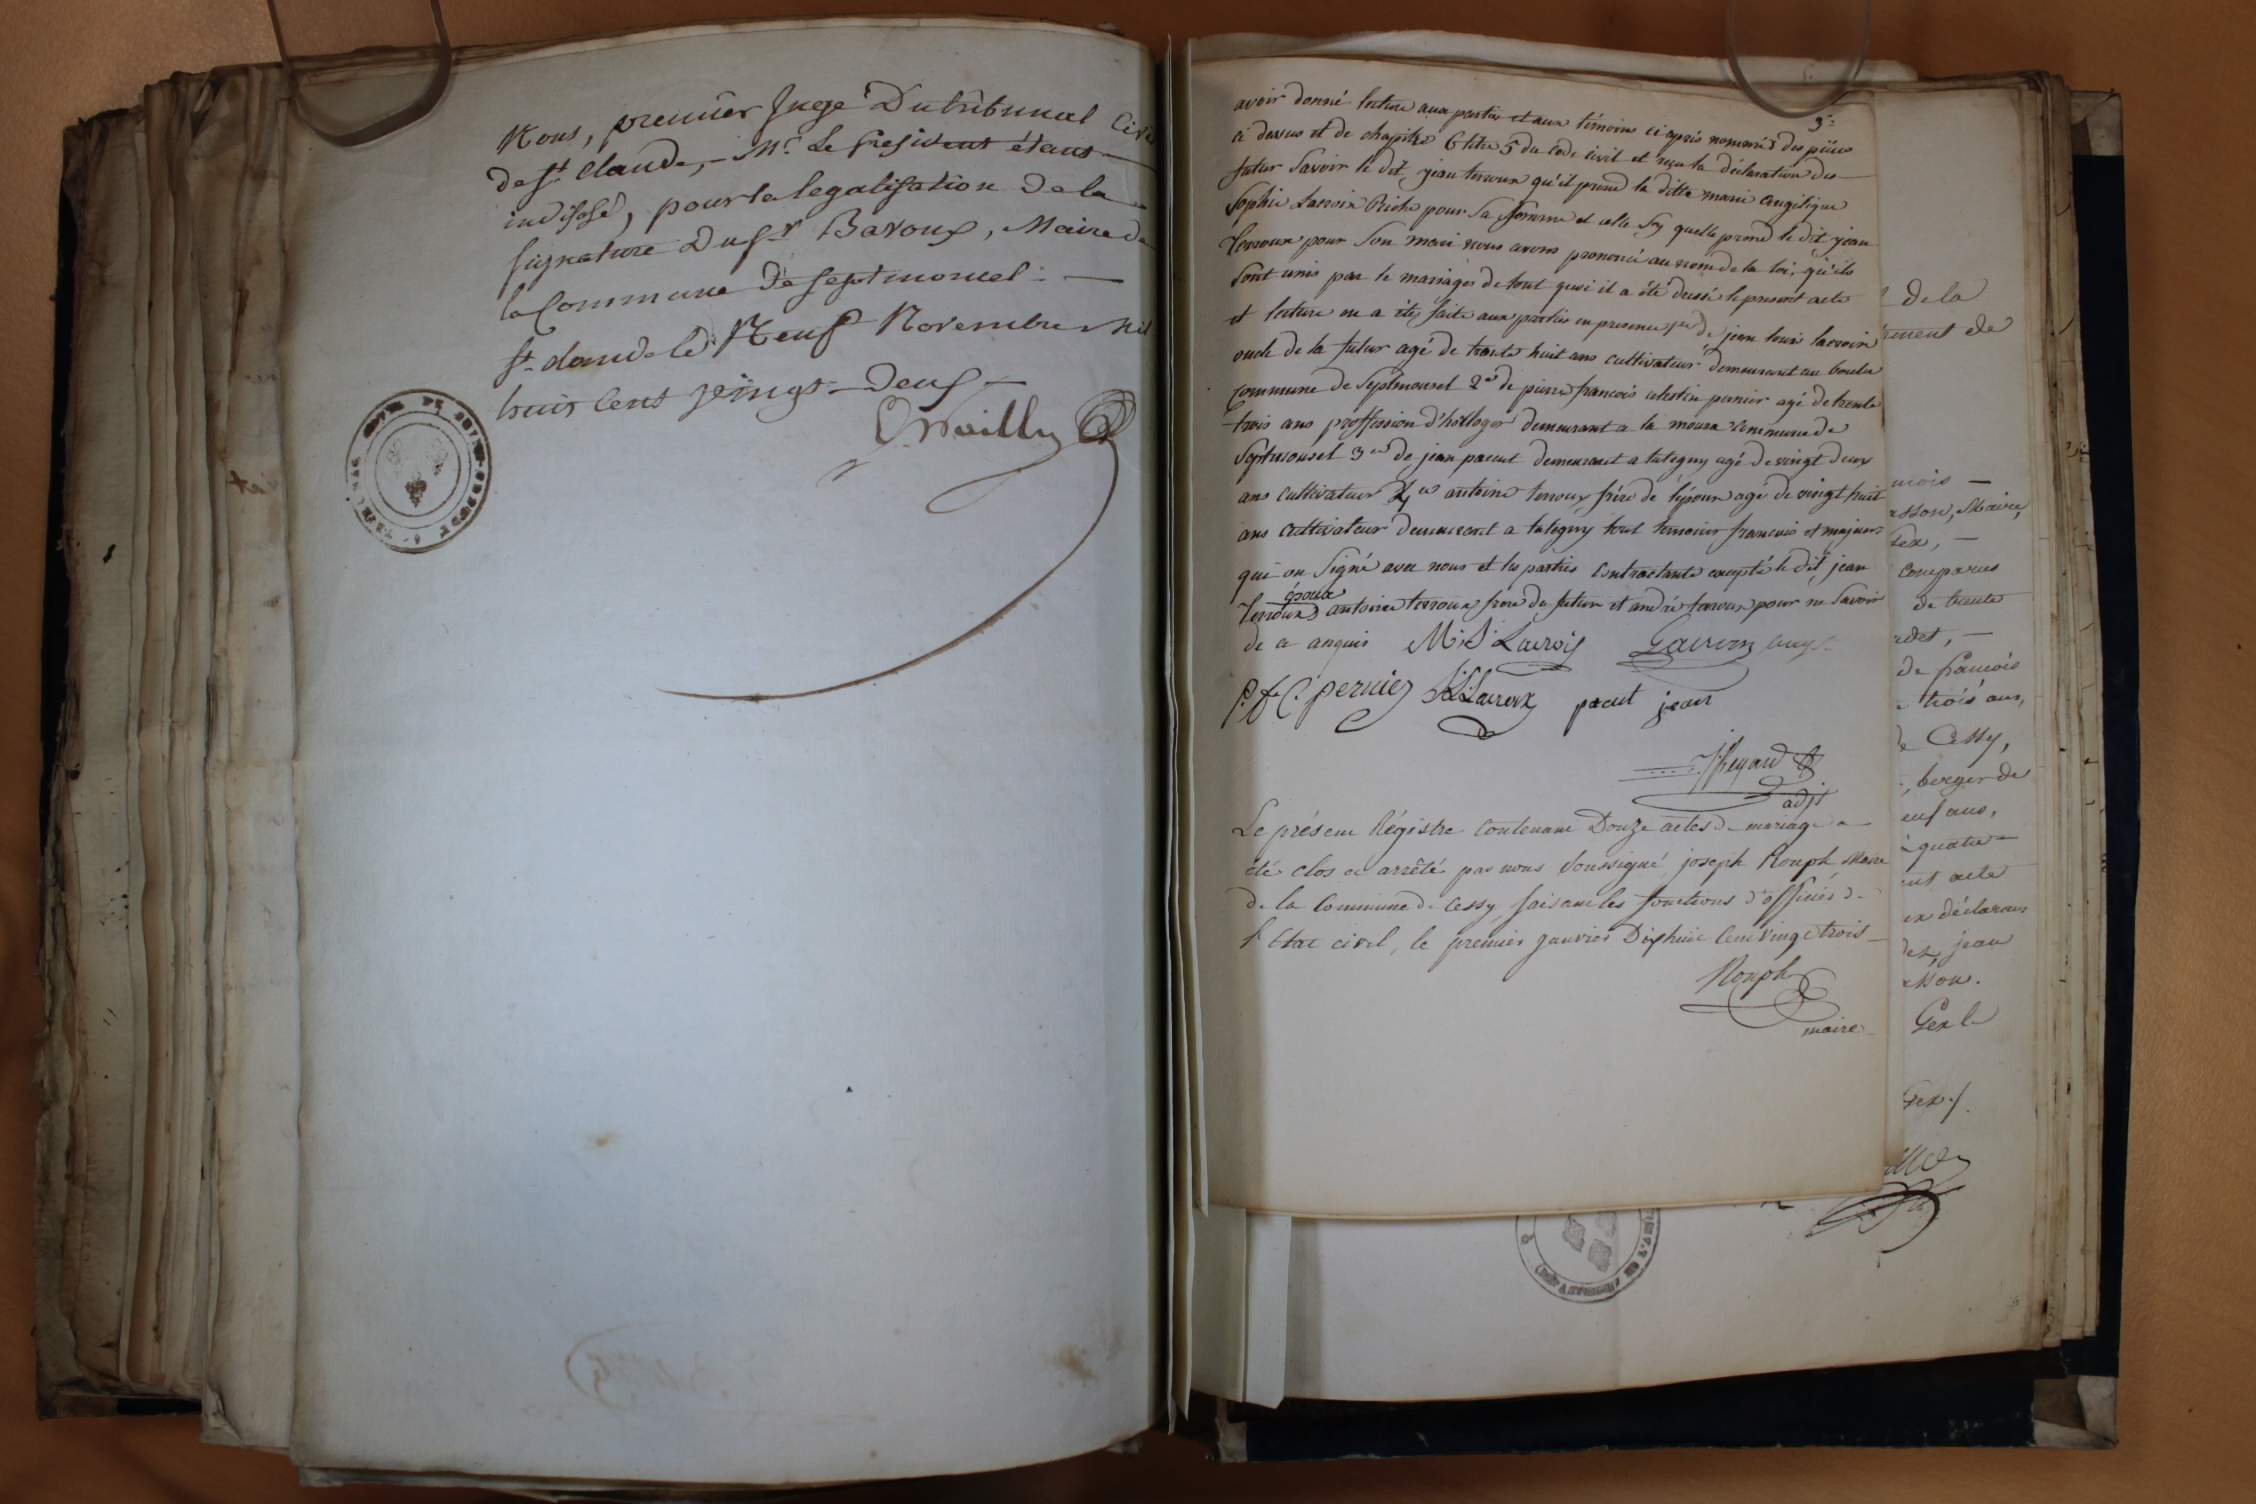 Nous, premier Juge Du tribunal Civi
de St. Claude, - Mr. Le president étant
indisposé, pour la legalisation De la
signature Du Sr Baroux, Maire de
la Commune de septmoncel : —
St. claude le Neuf Novembre Mil
huit Cent Vingt-Deux —
avoir donné lecture aux parties et aux témoins ci après nommés des pièces
ci dessus et de chapitre 6 titre 5 du code civil et reçu la déclaration des
futur Savoir le dit jean terroux qu'il prend la ditte marie angélique
Sophie Lacroix Riche pour Sa femme et celle Sy quelle prend le dit jean
terroux pour Son mari nous avons prononcé au nom de la loi, qu'ils
Sont unis par le mariages de tout quoi il a été dressé le present acte
et lecture en a étés faite aux parties en presence 1er de jean louis lacroix
oncle de la futur agé de trente huit ans cultivateur demeurant au
Commune de Septmoncel 2e de pierre francois celestin pernier agé de trente
trois ans proffession d'horloger demeurant a la moura commune de
Septmoncel 3e de jean pacut demeurant a tutegny agé de vingt deux
ans cultivateur 4e antoine terroux frére de l'époux agé de vingt huit
ans cultivateur demeurant a tutegny tout temoins francais et majeurs
qui on Signé avec nous et les parties Contractante excepté le dit jean
époux
terroux antoine terroux frere du futur et andré terroux pour ne Savoir
de ce anquis M. S. Lacroix Lacroix
P. f. C. pernier J. L. Lacroix pacut jean
adjt
Le présent Régistre contenant Douze actes de mariage a
été clos et arrêté par nous Soussigné, joseph Rouph, Maire
de la Commune de Cessy, faisant les fonctions d'officier de
l'Etat civil, le premier janvier Dix huit Cent Vingt trois —
Rouph
maire
de la
de
Maire,
Gex, —
comparus
de trente
de francois
trois ans,
de Cessy,
, berger de
quatre
acte
déclarans
jean
Gex le
Gex ./.